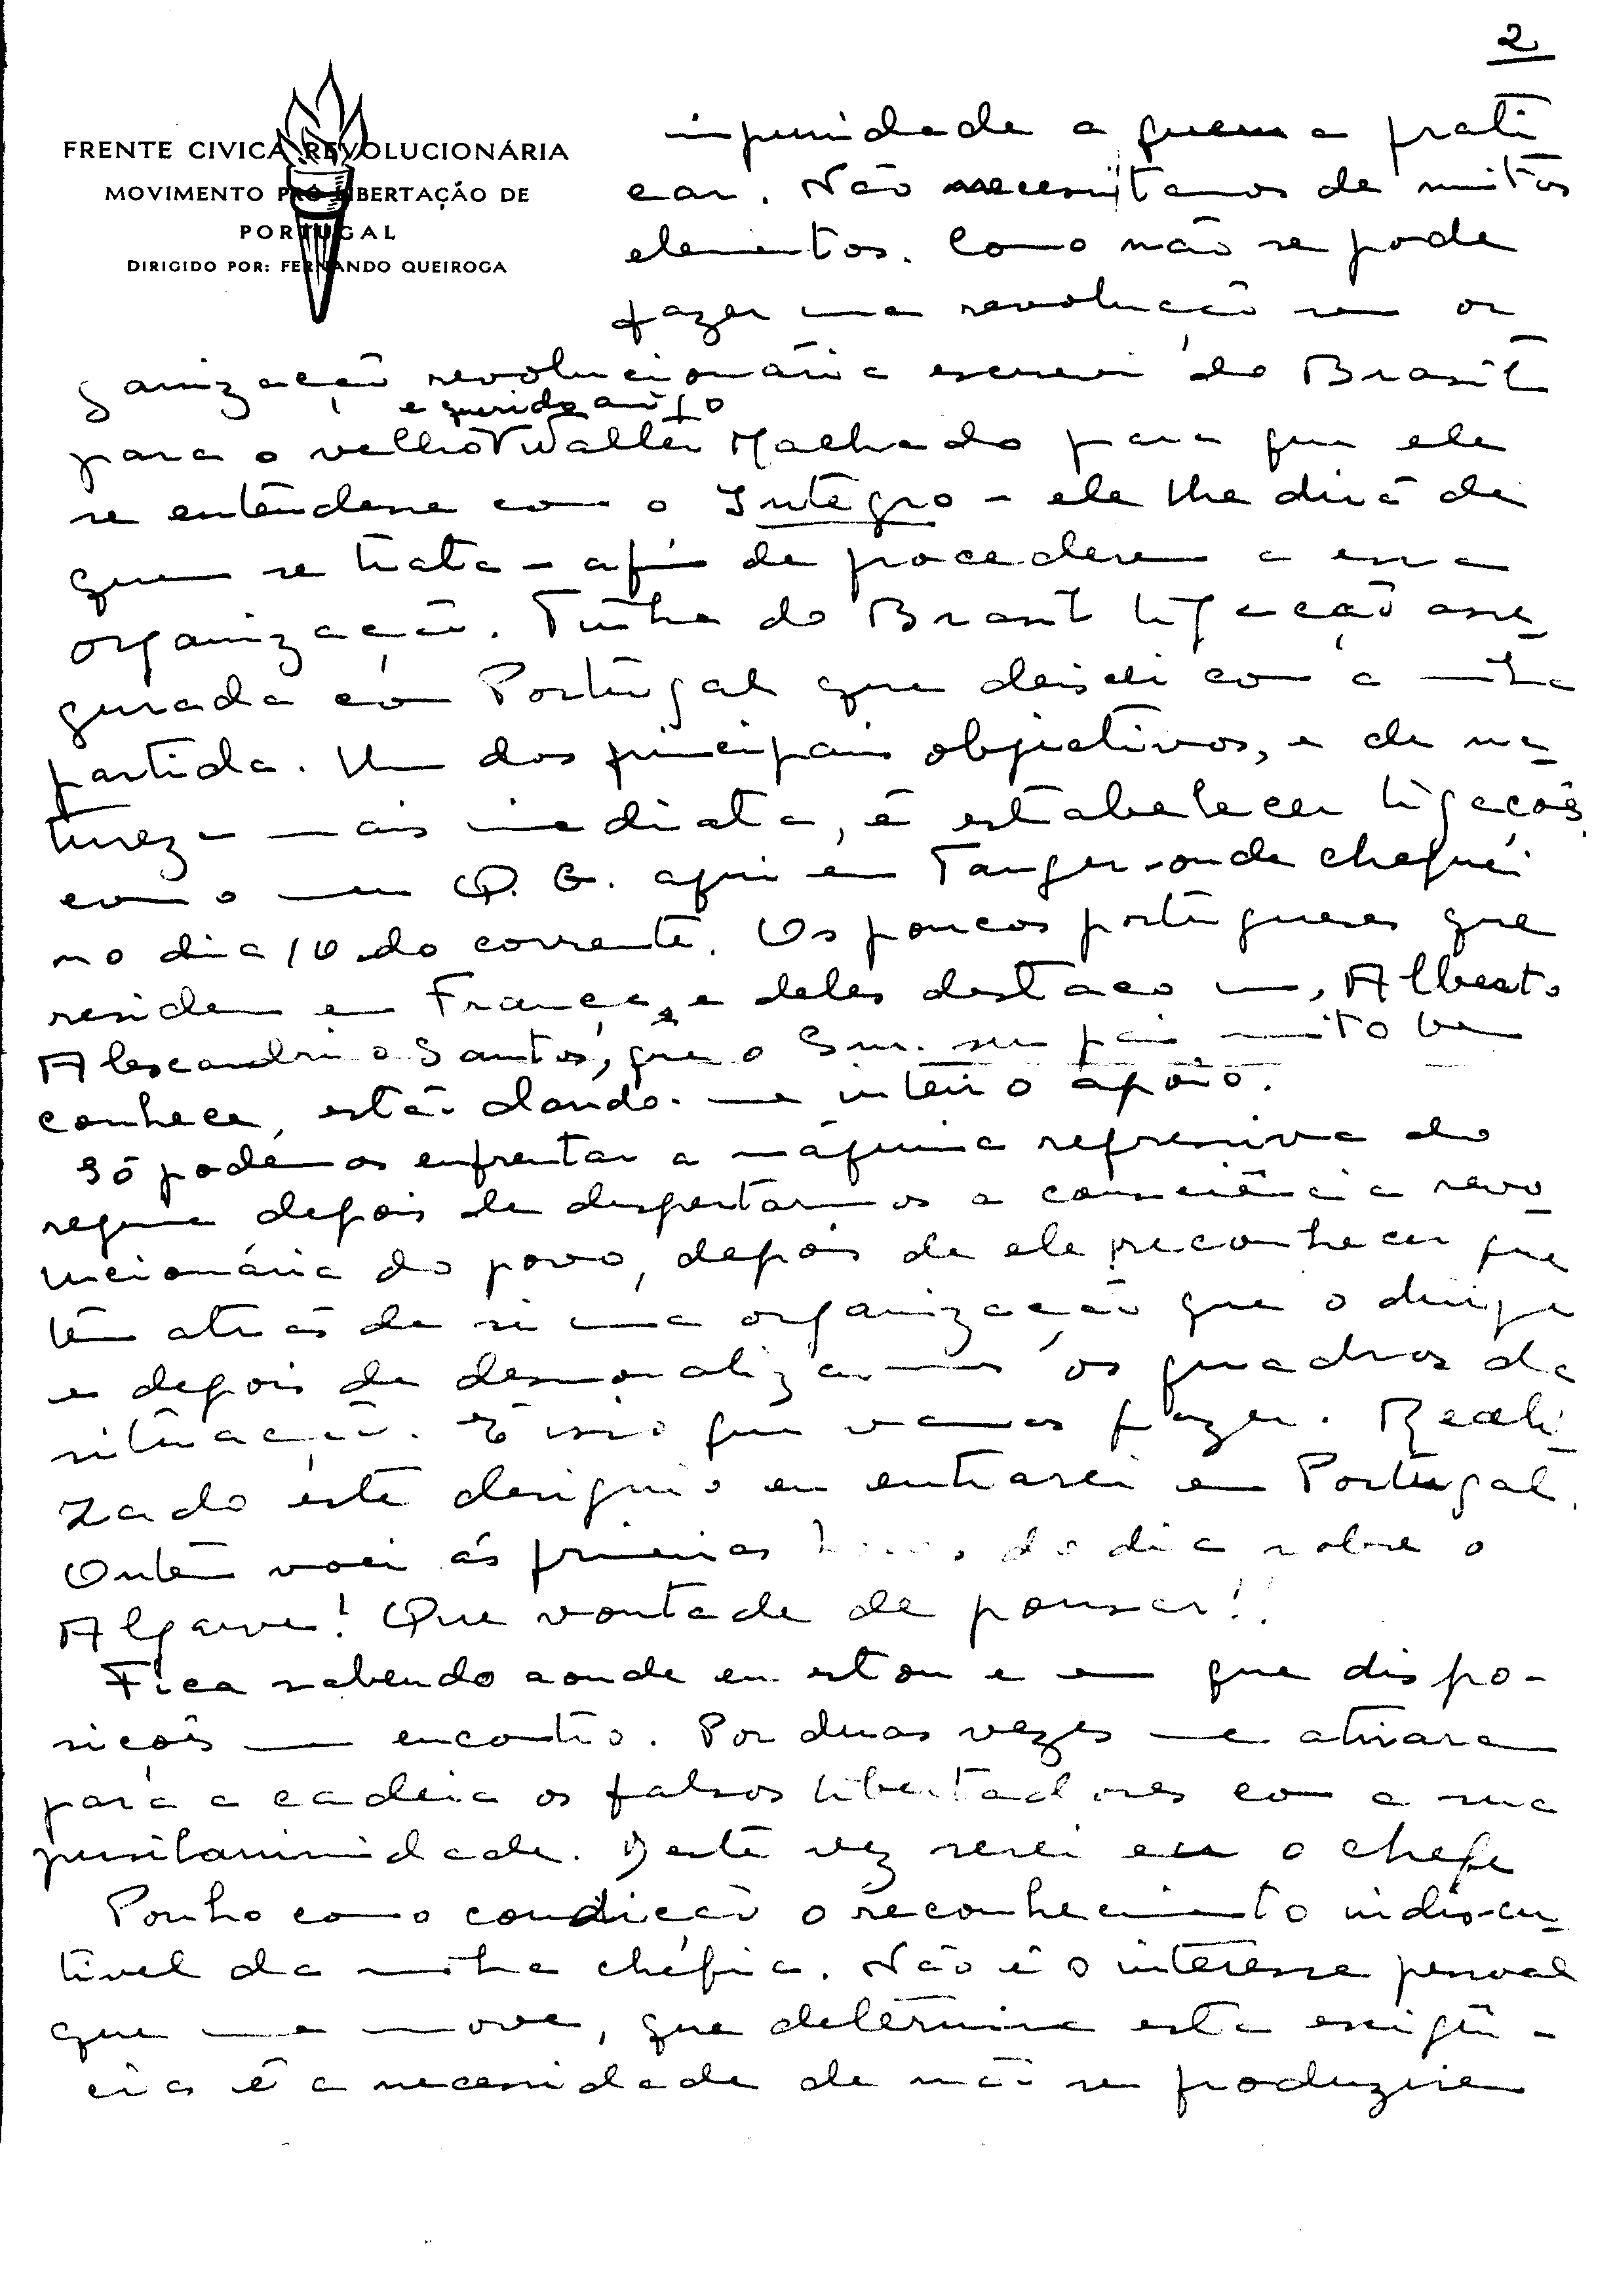 2
FRENTE CIVICA REVOLUCIONÁRIA
MOVIMENTO PRÓ LIBERTAÇÃO DE
PORTUGAL
DIRIGIDO POR: FERNANDO QUEIROGA
impunidade a quem a prati
car. Não necessitamos de muitos
elementos. Como não se pode
fazer uma revolução sem or
ganização revolucionária escrevi do Brasil
e querido amigo
para o velho Walter Machado para que ele
se entendesse com o Integro - ele lhe dirá de
quem se trata - afim de procederem a essa
organização. Tinha do Brasil ligação asse-
gurada com Portugal que deixei com a minha
partida. Um dos principais objectivos, e de na-
tureza mais imediata, é estabelecer ligações
com o meu Q. G. aqui em Tanger - onde cheguei
no dia 10 do corrente. Os poucos portugueses que
residem em França, e deles destaco um, Alberto
Alexandrino Santos, que o Snr. seu pai muito bem
conhece, estão dando-me inteiro apoio.
Só podemos enfrentar a máquina repressiva do
regime depois de despertarmos a consciência revo-
lucionária do povo, depois de ele reconhecer que
tem atrás de si uma organização que o dirige
e depois de desmoralizarmos os quadros da
situação. É isso que vamos fazer. Reali-
zado este designio eu entrarei em Portugal.
Ontem voei ás primeiras horas do dia sobre o
Algarve! Que vontade de pousar!
Fica sabendo aonde eu estou e em que dispo-
sições me encontro. Por duas vezes me atiraram
para a cadeia os falsos libertadores com a sua
pusilanimidade. Desta vez serei eu o chefe
Ponho como condição o reconhecimento indiscu-
tivel da minha chefia. Não é o interesse pessoal
que me move, que determina esta exigên-
cia é a necessidade de não se produzirem